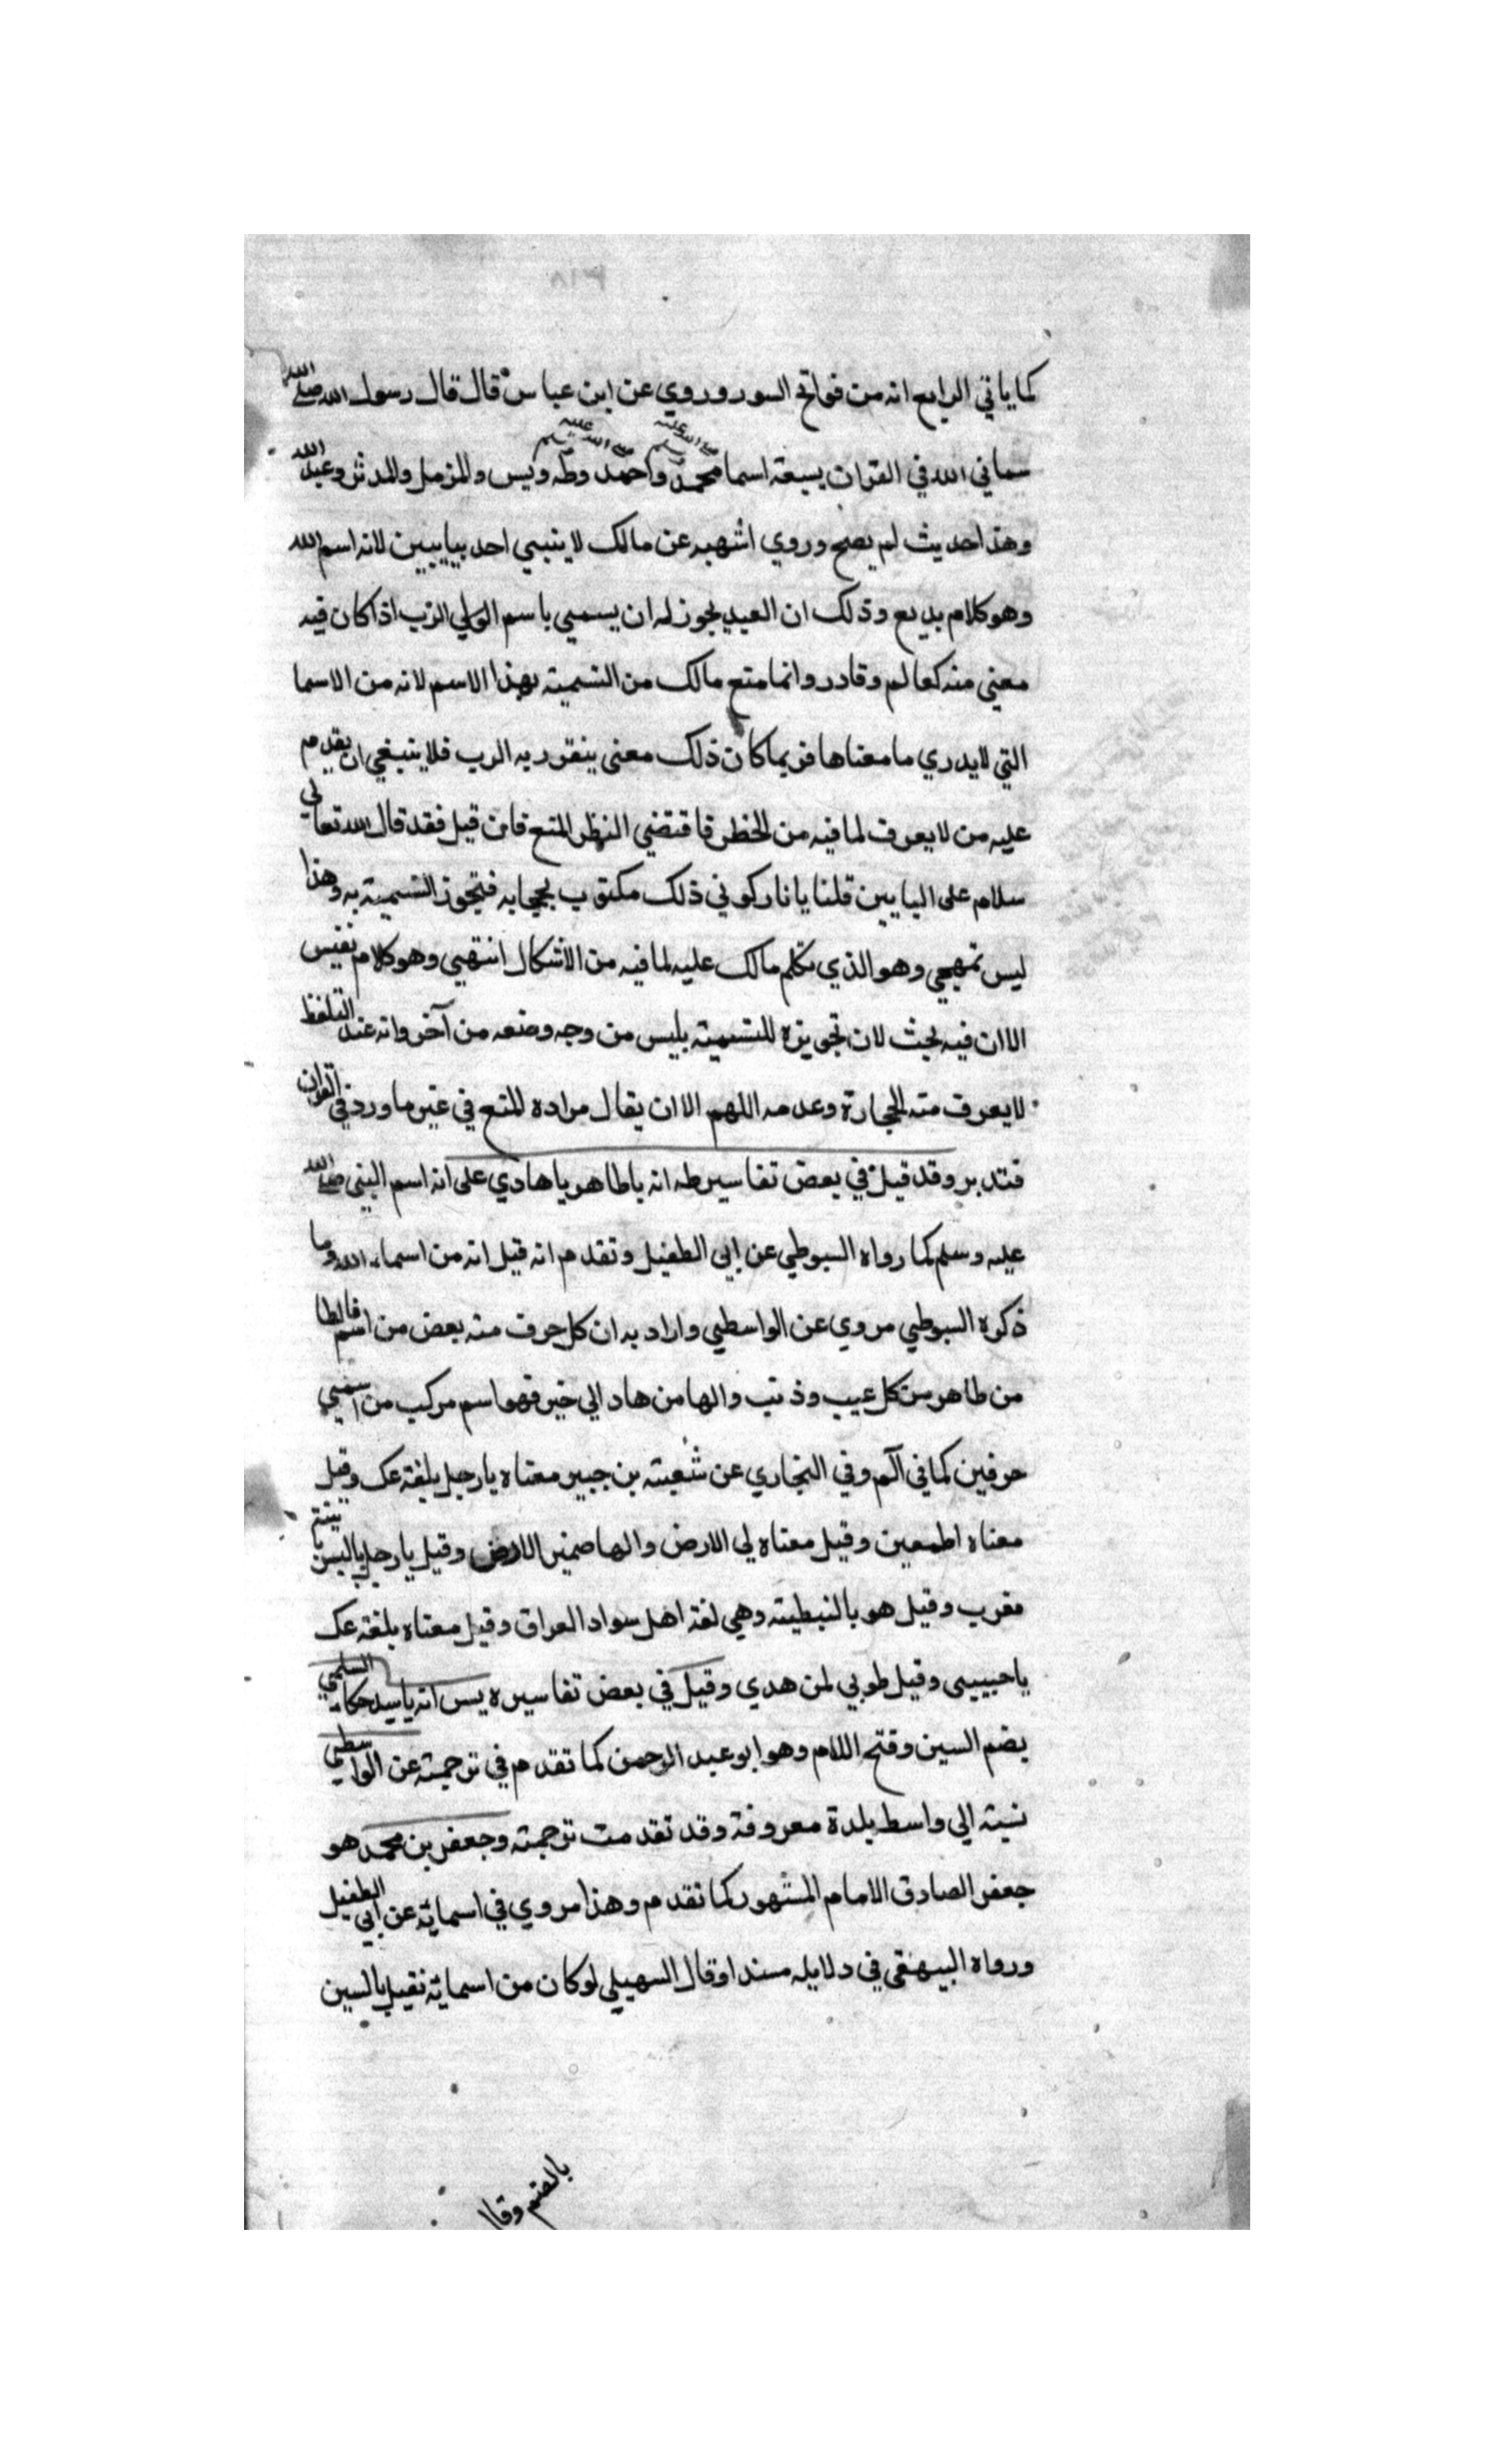 ٣١٨
كما ياتي الرابع انه من فواتح السور وروي عن ابن عباس قال قال رسول الله صلى الله
سماني الله في القران بسبعة اسما محمد صلى الله عليه وسلم واحمد صلى الله عليه وسلم وطه ويس والمزمل والمدثر وعبد الله
وهذا حديث لم يصح وروي اشهب عن مالك لا ينبغي احد بيايسين لانه اسم الله
وهو كلام بديع وذلك ان العبد يجوز له ان يسمي باسم الولي الرب اذا كان فيه
معني منه كعالم وقادر وانما منع مالك من التسمية بهذا الاسم لانه من الاسما
التي لا يدري ما معناها فربما كان ذلك معني ينفرد به الرب فلا ينبغي ان يقدم
عليه من لا يعرف لما فيه من الخطر فاقتضي النظر المنع فان قيل فقد قال الله تعالي
سلام على الياسين قلنا يا تاركوني ذلك مكتوب بهجايه فتجوز التسمية به وهذا
ليس تهجي وهو الذي تكلم مالك عليه لما فيه من الاشكال انتهي وهو كلام نفيس
الا ان فيه بحث لان تجويزه للتسمية بليس من وجه ومنعه من آخر وانه عند التلفظ
لا يعرف منه الحجارة وعدمه اللهم الا ان يقال مراده المنع في غير ما ورد في القران
فتدبر وقد قيل في بعض تفاسير طه انه ياطاهر ياهادي على انه اسم النبي صلى الله
عليه وسلم كما رواه السيوطي عن ابي الطفيل وتقدم انه قيل انه من اسماء الله وما
ذكره السيوطي مروي عن الواسطي واراد به ان كل حرف منه بعض من اسم فالطا
من طاهر من كل عيب وذنب والها من هاد الي خير فهو اسم مركب من اسمي
حرفين كما في آلم وفي البخاري عن شعبته بن جبير معناه يا رجل بلغة عك وقيل
معناه اطمعين وقيل معناه لي الارض والها ضمير الارض وقيل يا رجل بالسريانية
معرب وقيل هو بالنبطية وهي لغة اهل سواد العراق وقيل معناه بلغة عك
يا حبيبي وقيل طوبي لمن هدي وقيل في بعض تفاسيره يس انه يا سيد حكاه السلمي
بضم السين وفتح اللام وهو ابو عبد الرحمن كما تقدم في ترجمته عن الواسطي
نسبة الي واسط بلدة معروفة وقد تقدمت ترجمته وجعفر بن محمد هو
جعفر الصادق الامام المشهور كما تقدم وهذا مروي في اسمائه عن ابي الطفيل
ورواه البيهقي في دلايله مسندا وقال السهيلي لو كان من اسمائه لقيل يالسين
بالضم وقال